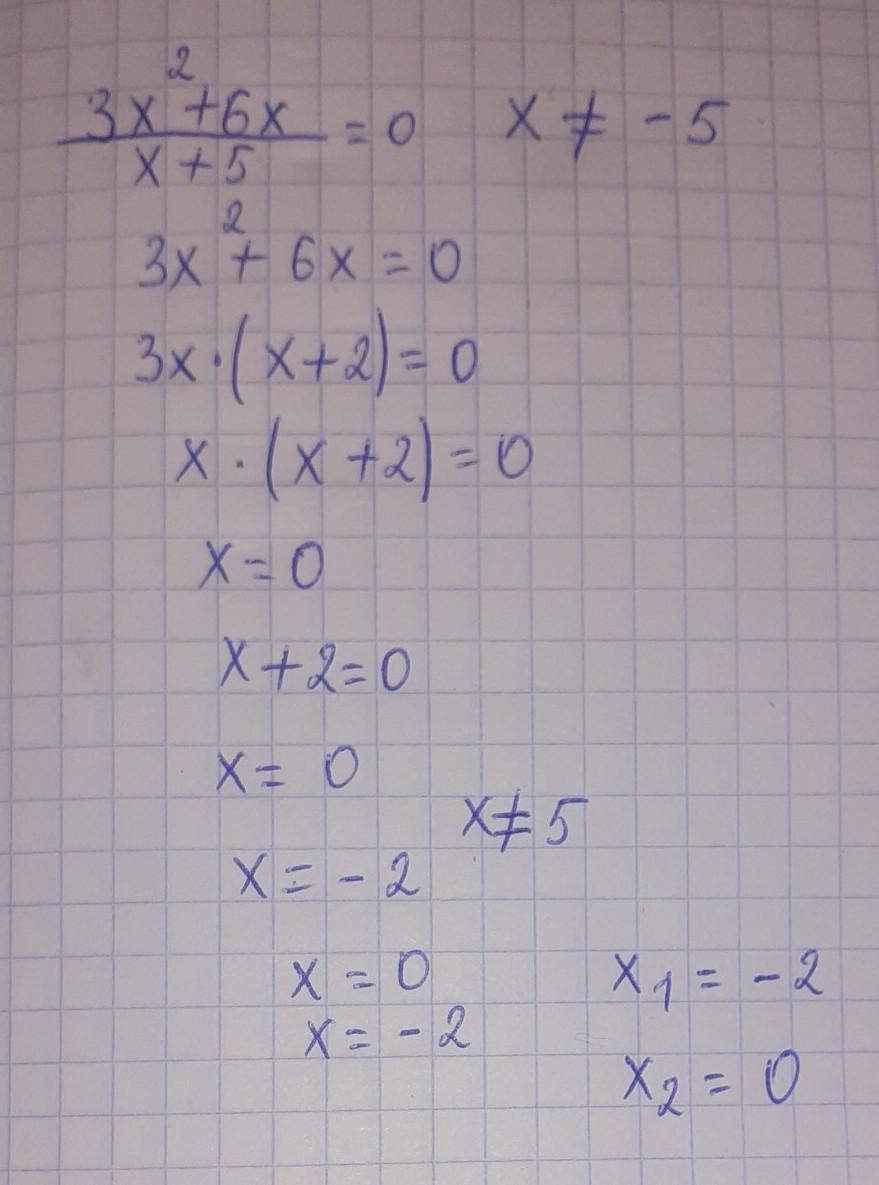 (3x² + 6x)/(x + 5) = 0    x ≠ -5
3x² + 6x = 0
3x · (x + 2) = 0
x · (x + 2) = 0
x = 0
x + 2 = 0
x = 0
x ≠ 5
x = -2
x = 0    x₁ = -2
x = -2
x₂ = 0